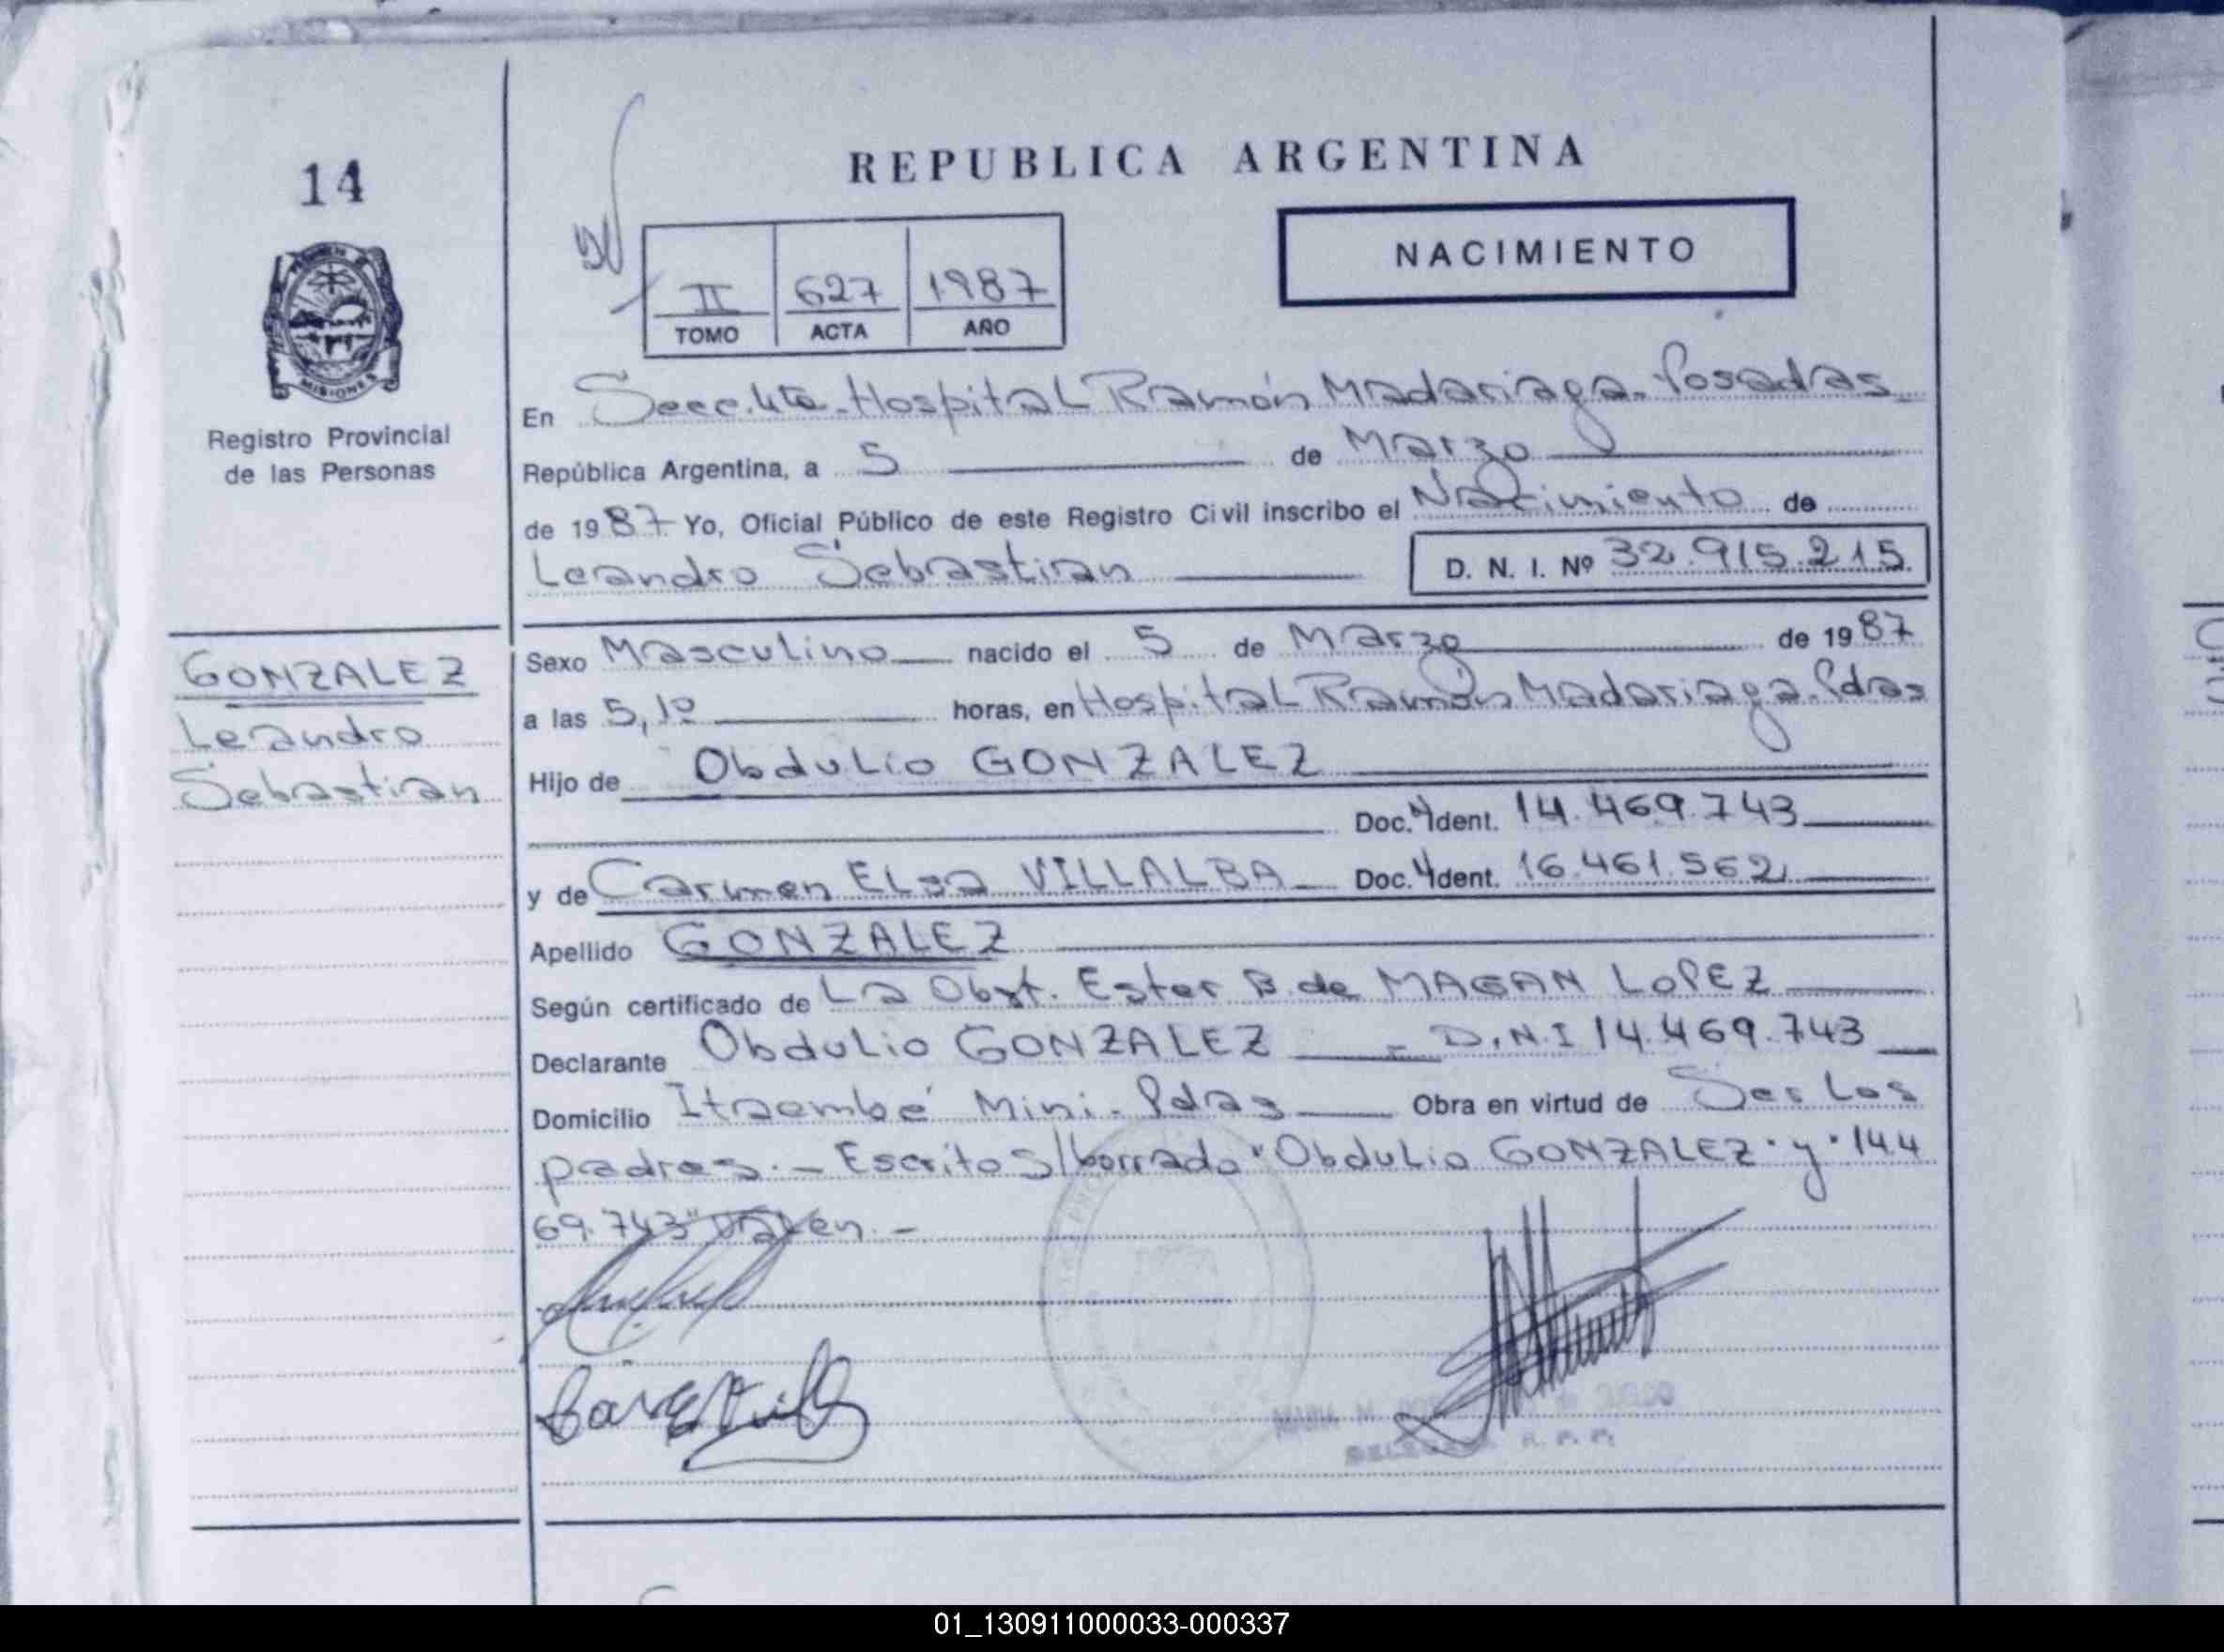 14
REPUBLICA ARGENTINA
NACIMIENTO
II 627 1987
TOMO ACTA AÑO
MISIONES
Registro Provincial
de las Personas
En Secc. 4ta. Hospital Ramón Madariaga. Posadas
República Argentina, a 5 de Marzo
de 1987 Yo, Oficial Público de este Registro Civil inscribo el Nacimiento de
Leandro Sebastian D. N. I. Nº 32.915.215
GONZALEZ
Leandro
Sebastian
Sexo Masculino nacido el 5 de Marzo de 1987
a las 5,10 horas, en Hospital Ramón Madariaga. Pdas
Hijo de Obdulio GONZALEZ
Doc. Ident. 14.469.743
y de Carmen Elsa VILLALBA Doc. Ident. 16.461.562
Apellido GONZALEZ
Según certificado de La Obst. Ester B. de MAGAN LOPEZ
Declarante Obdulio GONZALEZ - D.N.I 14.469.743
Domicilio Itaembé Mini. Pdas Obra en virtud de Ser los
padres. - Escrito s/borrado "Obdulio GONZALEZ" y "144
69.743" Valen. -
01_130911000033-000337